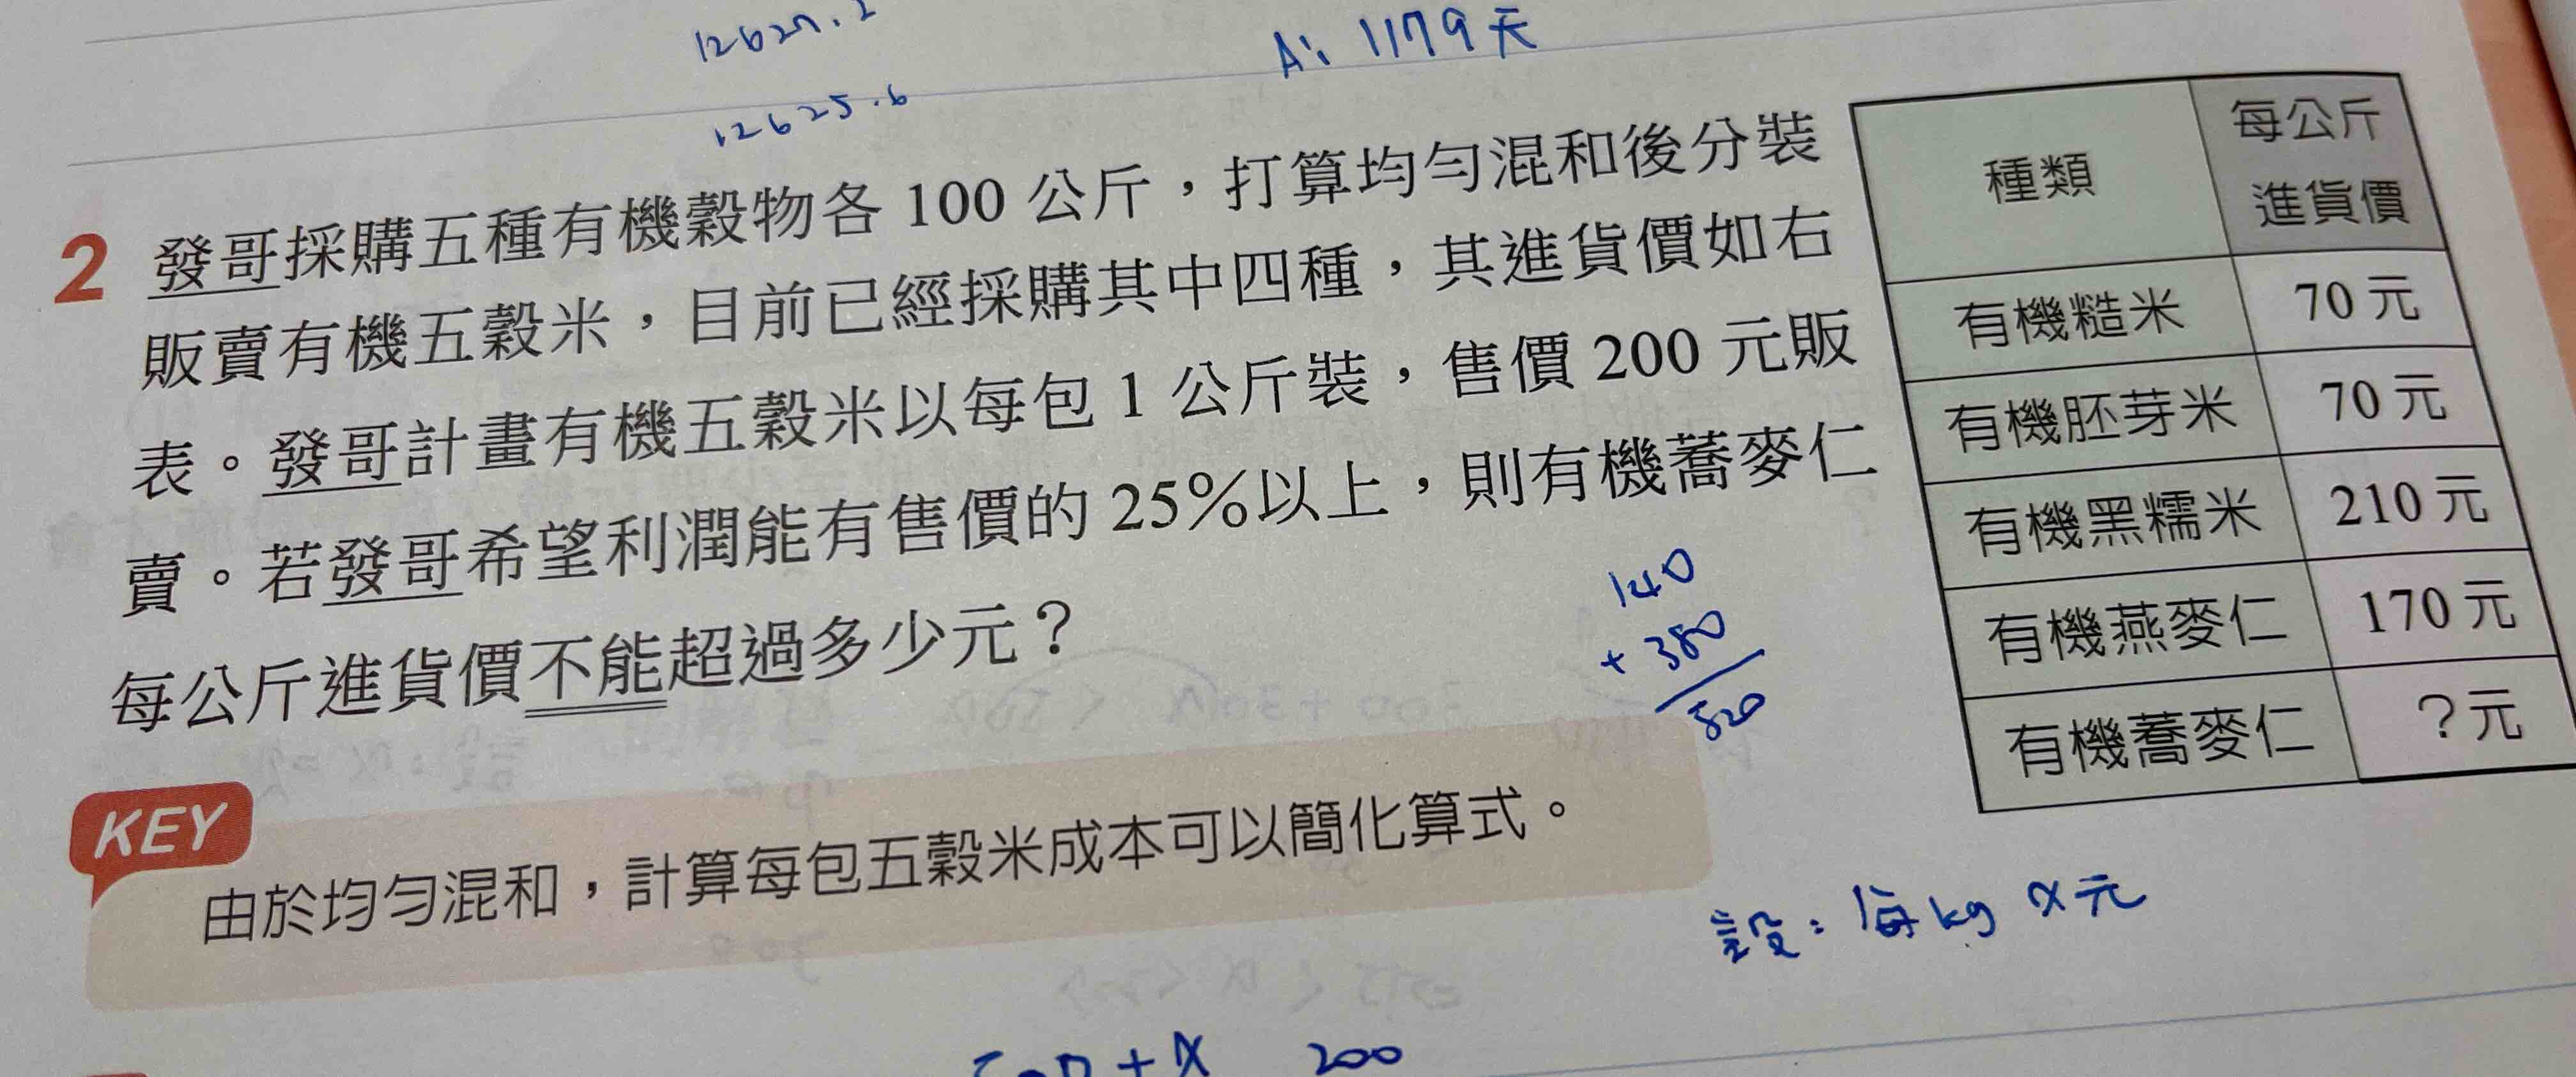 12627.2
A: 1179天
12625.6
2 發哥採購五種有機穀物各 100 公斤，打算均勻混和後分裝
販賣有機五穀米，目前已經採購其中四種，其進貨價如右
表。發哥計畫有機五穀米以每包 1 公斤裝，售價 200 元販
賣。若發哥希望利潤能有售價的 25％以上，則有機蕎麥仁
每公斤進貨價不能超過多少元？
種類 每公斤
進貨價
有機糙米 70 元
有機胚芽米 70 元
有機黑糯米 210 元
有機燕麥仁 170 元
有機蕎麥仁 ？元
140
+ 380
520
KEY
由於均勻混和，計算每包五穀米成本可以簡化算式。
設：每kg x元
+ x 200